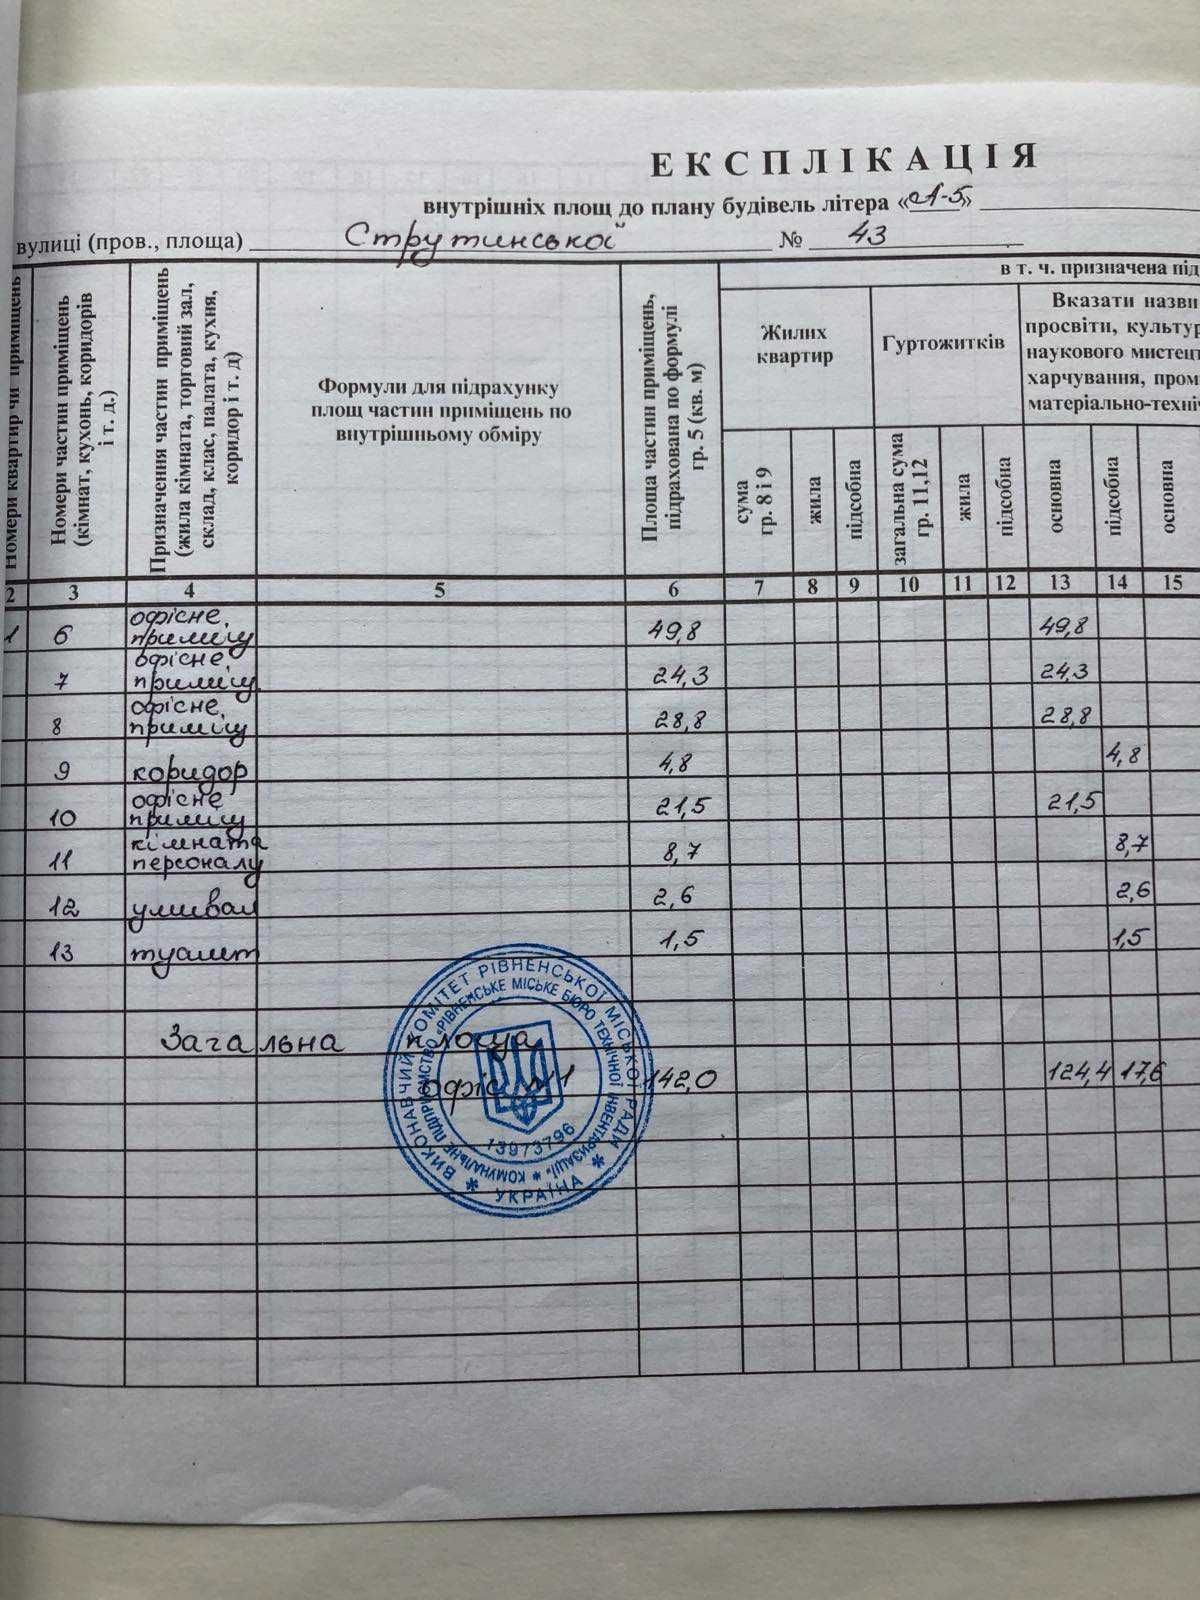 ЕКСПЛІКАЦІЯ
внутрішніх площ до плану будівель літера «А-5»
вулиці (пров., площа) Струтинської № 43
Номери квартир чи приміщень
Номери частин приміщень
(кімнат, кухонь, коридорів
і т. д.)
Призначення частин приміщень
(жила кімната, торговий зал,
склад, клас, палата, кухня,
коридор і т. д)
Формули для підрахунку
площ частин приміщень по
внутрішньому обміру
Площа частин приміщень,
підрахована по формулі
гр. 5 (кв. м)
в т. ч. призначена під
Жилих
квартир
Гуртожитків
Вказати назви
просвіти, культур
наукового мистецт
харчування, пром
матеріально-техніч
сума
гр. 8 і 9
жила
підсобна
загальна сума
гр. 11,12
жила
підсобна
основна
підсобна
основна
2 3 4 5 6 7 8 9 10 11 12 13 14 15
1 6 офісне приміщ 49,8 49,8
7 офісне приміщ 24,3 24,3
8 офісне приміщ 28,8 28,8
9 коридор 4,8 4,8
10 офісне приміщ 21,5 21,5
11 кімната персоналу 8,7 8,7
12 умивал 2,6 2,6
13 туалет 1,5 1,5
Загальна площа
офіс №1 142,0 124,4 17,6
ВИКОНАВЧИЙ КОМІТЕТ РІВНЕНСЬКОЇ МІСЬКОЇ РАДИ
* УКРАЇНА *
КОМУНАЛЬНЕ ПІДПРИЄМСТВО «РІВНЕНСЬКЕ МІСЬКЕ БЮРО ТЕХНІЧНОЇ ІНВЕНТАРИЗАЦІЇ» *
13973796